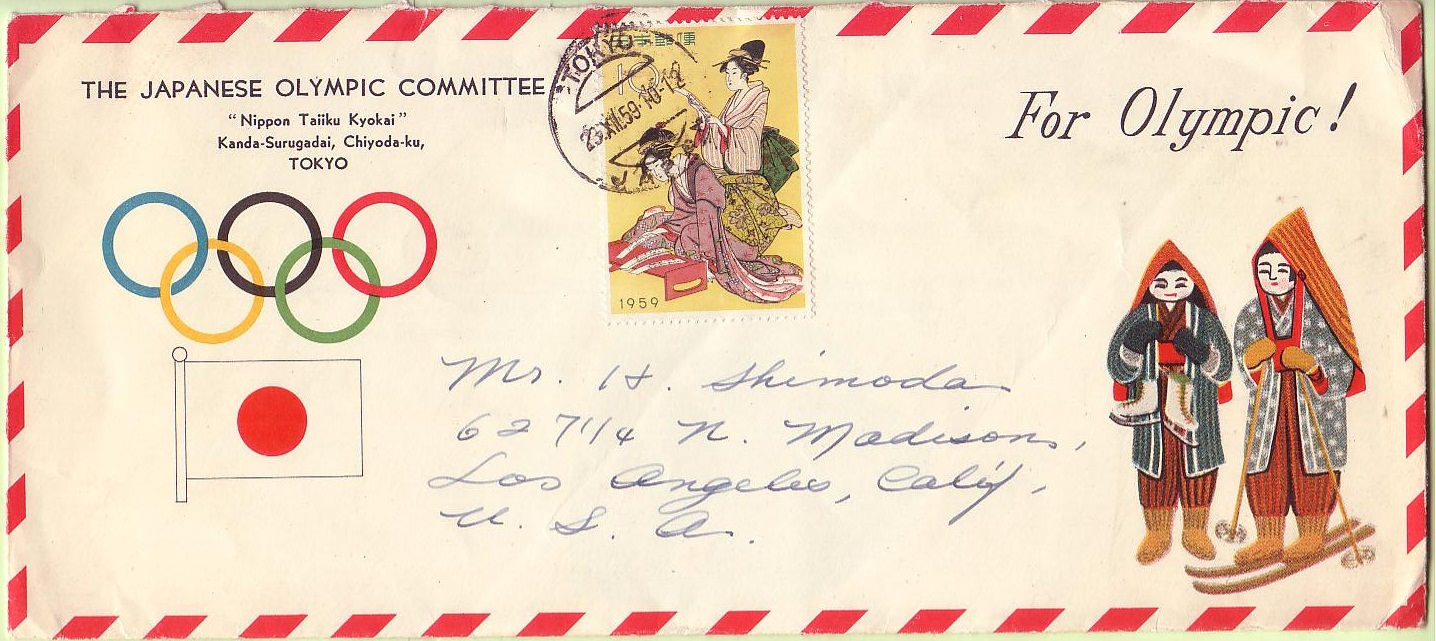 THE JAPANESE OLYMPIC COMMITTEE
"Nippon Taiiku Kyokai"
Kanda-Surugadai, Chiyoda-ku,
TOKYO
TOKYO
日本郵便
10
1959
For Olympic!
Mr. H. Shimoda
627 1/4 N. Madison,
Los Angeles, Calif,
U. S. A.